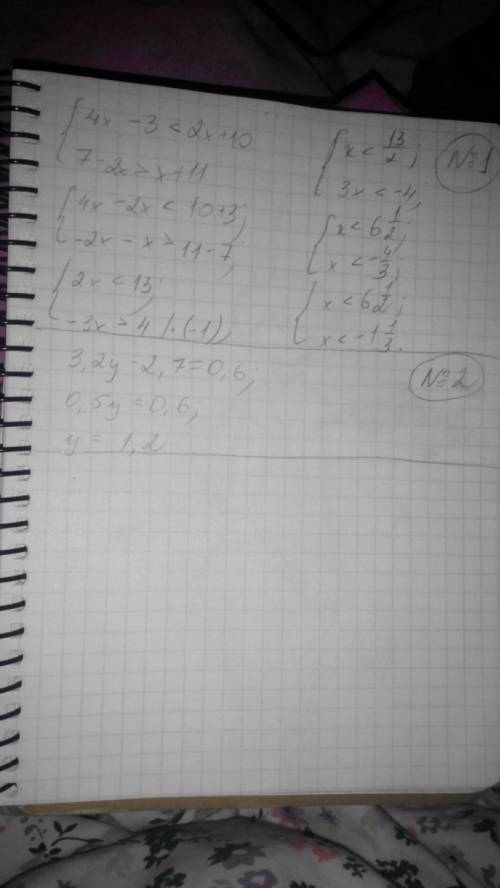 №1
{4x - 3 < 2x+10
7-2x > x+11
{4x - 2x < 10+3;
-2x - x > 11-7;
{2x < 13;
-3x > 4 |·(-1);
{x < 13/2;
3x < -4;
{x < 6 1/2;
x < -4/3;
{x < 6 1/2;
x < -1 1/3.
№2
3,2y - 2,7=0,6;
0,5y = 0,6;
y = 1,2